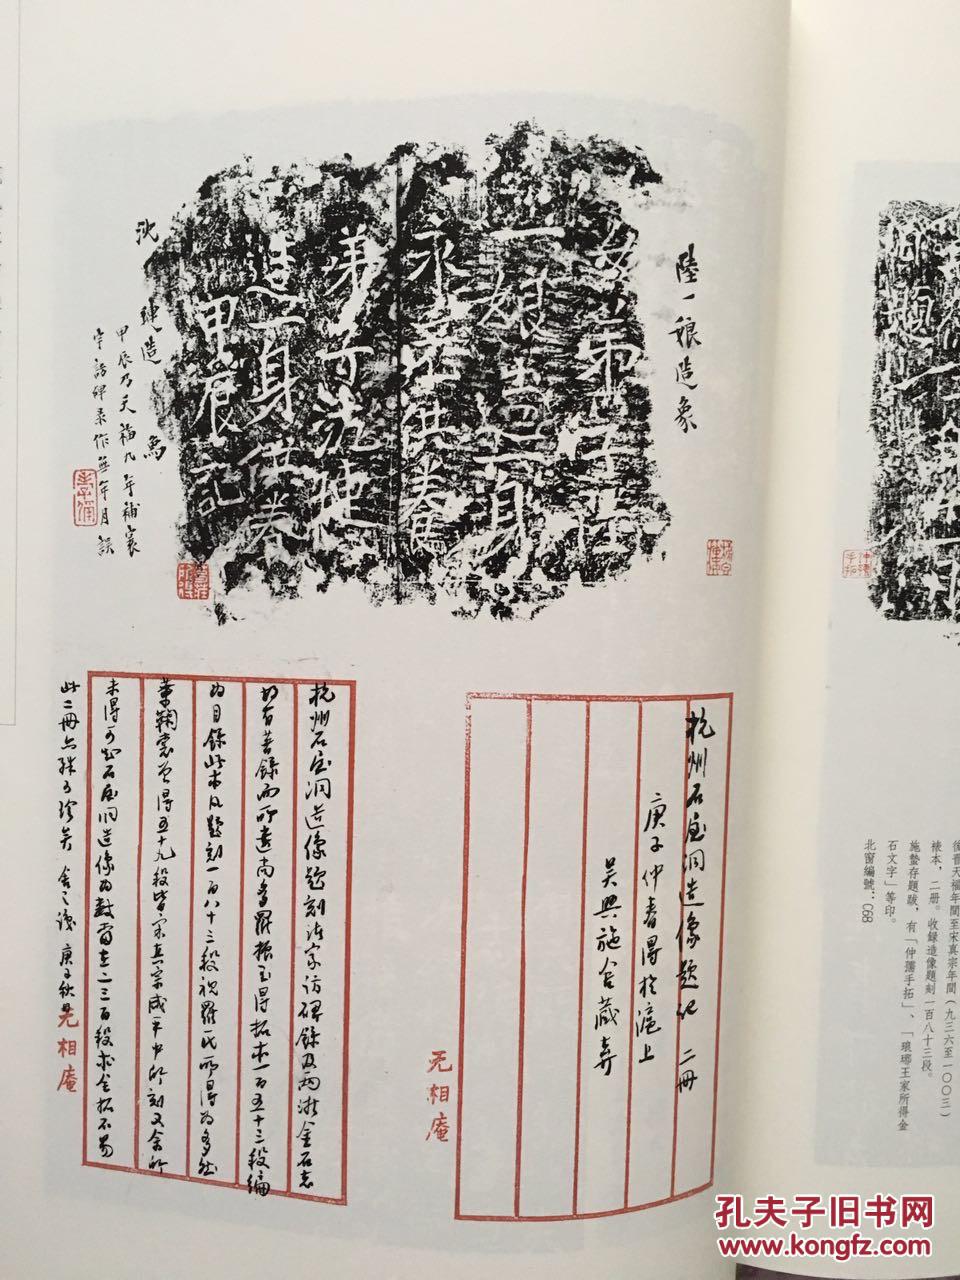 陸一娘造象
女弟子陸
一娘造一身
永充供養
弟子沈
造一身供养
甲辰記
造象
甲辰乃天福九年補寰
宇訪碑录作無年月誤
杭州石屋洞造像題記 二冊
庚子仲春得於滬上
吴興施舍藏弆
无相庵
杭州石屋洞造像題刻諸家訪碑錄及两浙金石志
均有著錄而所遺尚多羅振玉得拓本一百五十三段編
為目錄此本凡題刻一百八十三段視羅氏所得為多然
葉鞠裳曾得五十九段皆宋真宗咸平中所刻又余所
未得可知石屋洞造像为数當在二三百段求全拓不易
此二冊亦殊可珍矣 舍之識 庚子秋
无相庵
後晋天福年間至宋真宗年間(九三六至一〇〇三)
裱本,二册。收録造像題刻一百八十三段。
施蟄存題跋,有「仲孺手拓」、「琅琊王家所得金
石文字」等印。
北窗編號:C68
孔夫子旧书网
www.kongfz.com